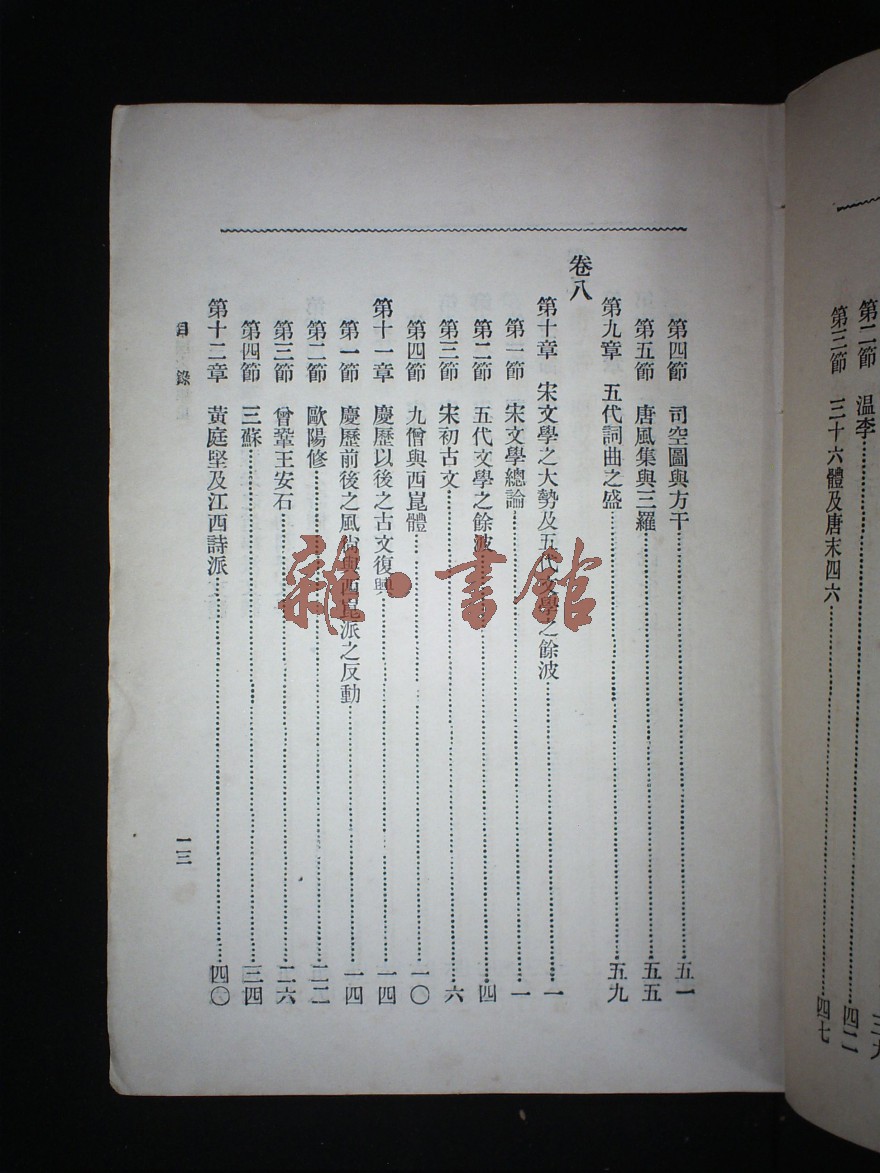 第二節　温李……四二
第三節　三十六體及唐末四六……四七
第四節　司空圖與方干……五一
第五節　唐風集與三羅……五五
第九章　五代詞曲之盛……五九
卷八
第十章　宋文學之大勢及五代文學之餘波……一
第一節　宋文學總論……一
第二節　五代文學之餘波……四
第三節　宋初古文……六
第四節　九僧與西崑體……一〇
第十一章　慶歷以後之古文復興……一四
第一節　慶歷前後之風尚與西崑派之反動……一四
第二節　歐陽修……二二
第三節　曾鞏王安石……二六
第四節　三蘇……三四
第十二章　黃庭堅及江西詩派……四〇
目錄
一三
雜·書館